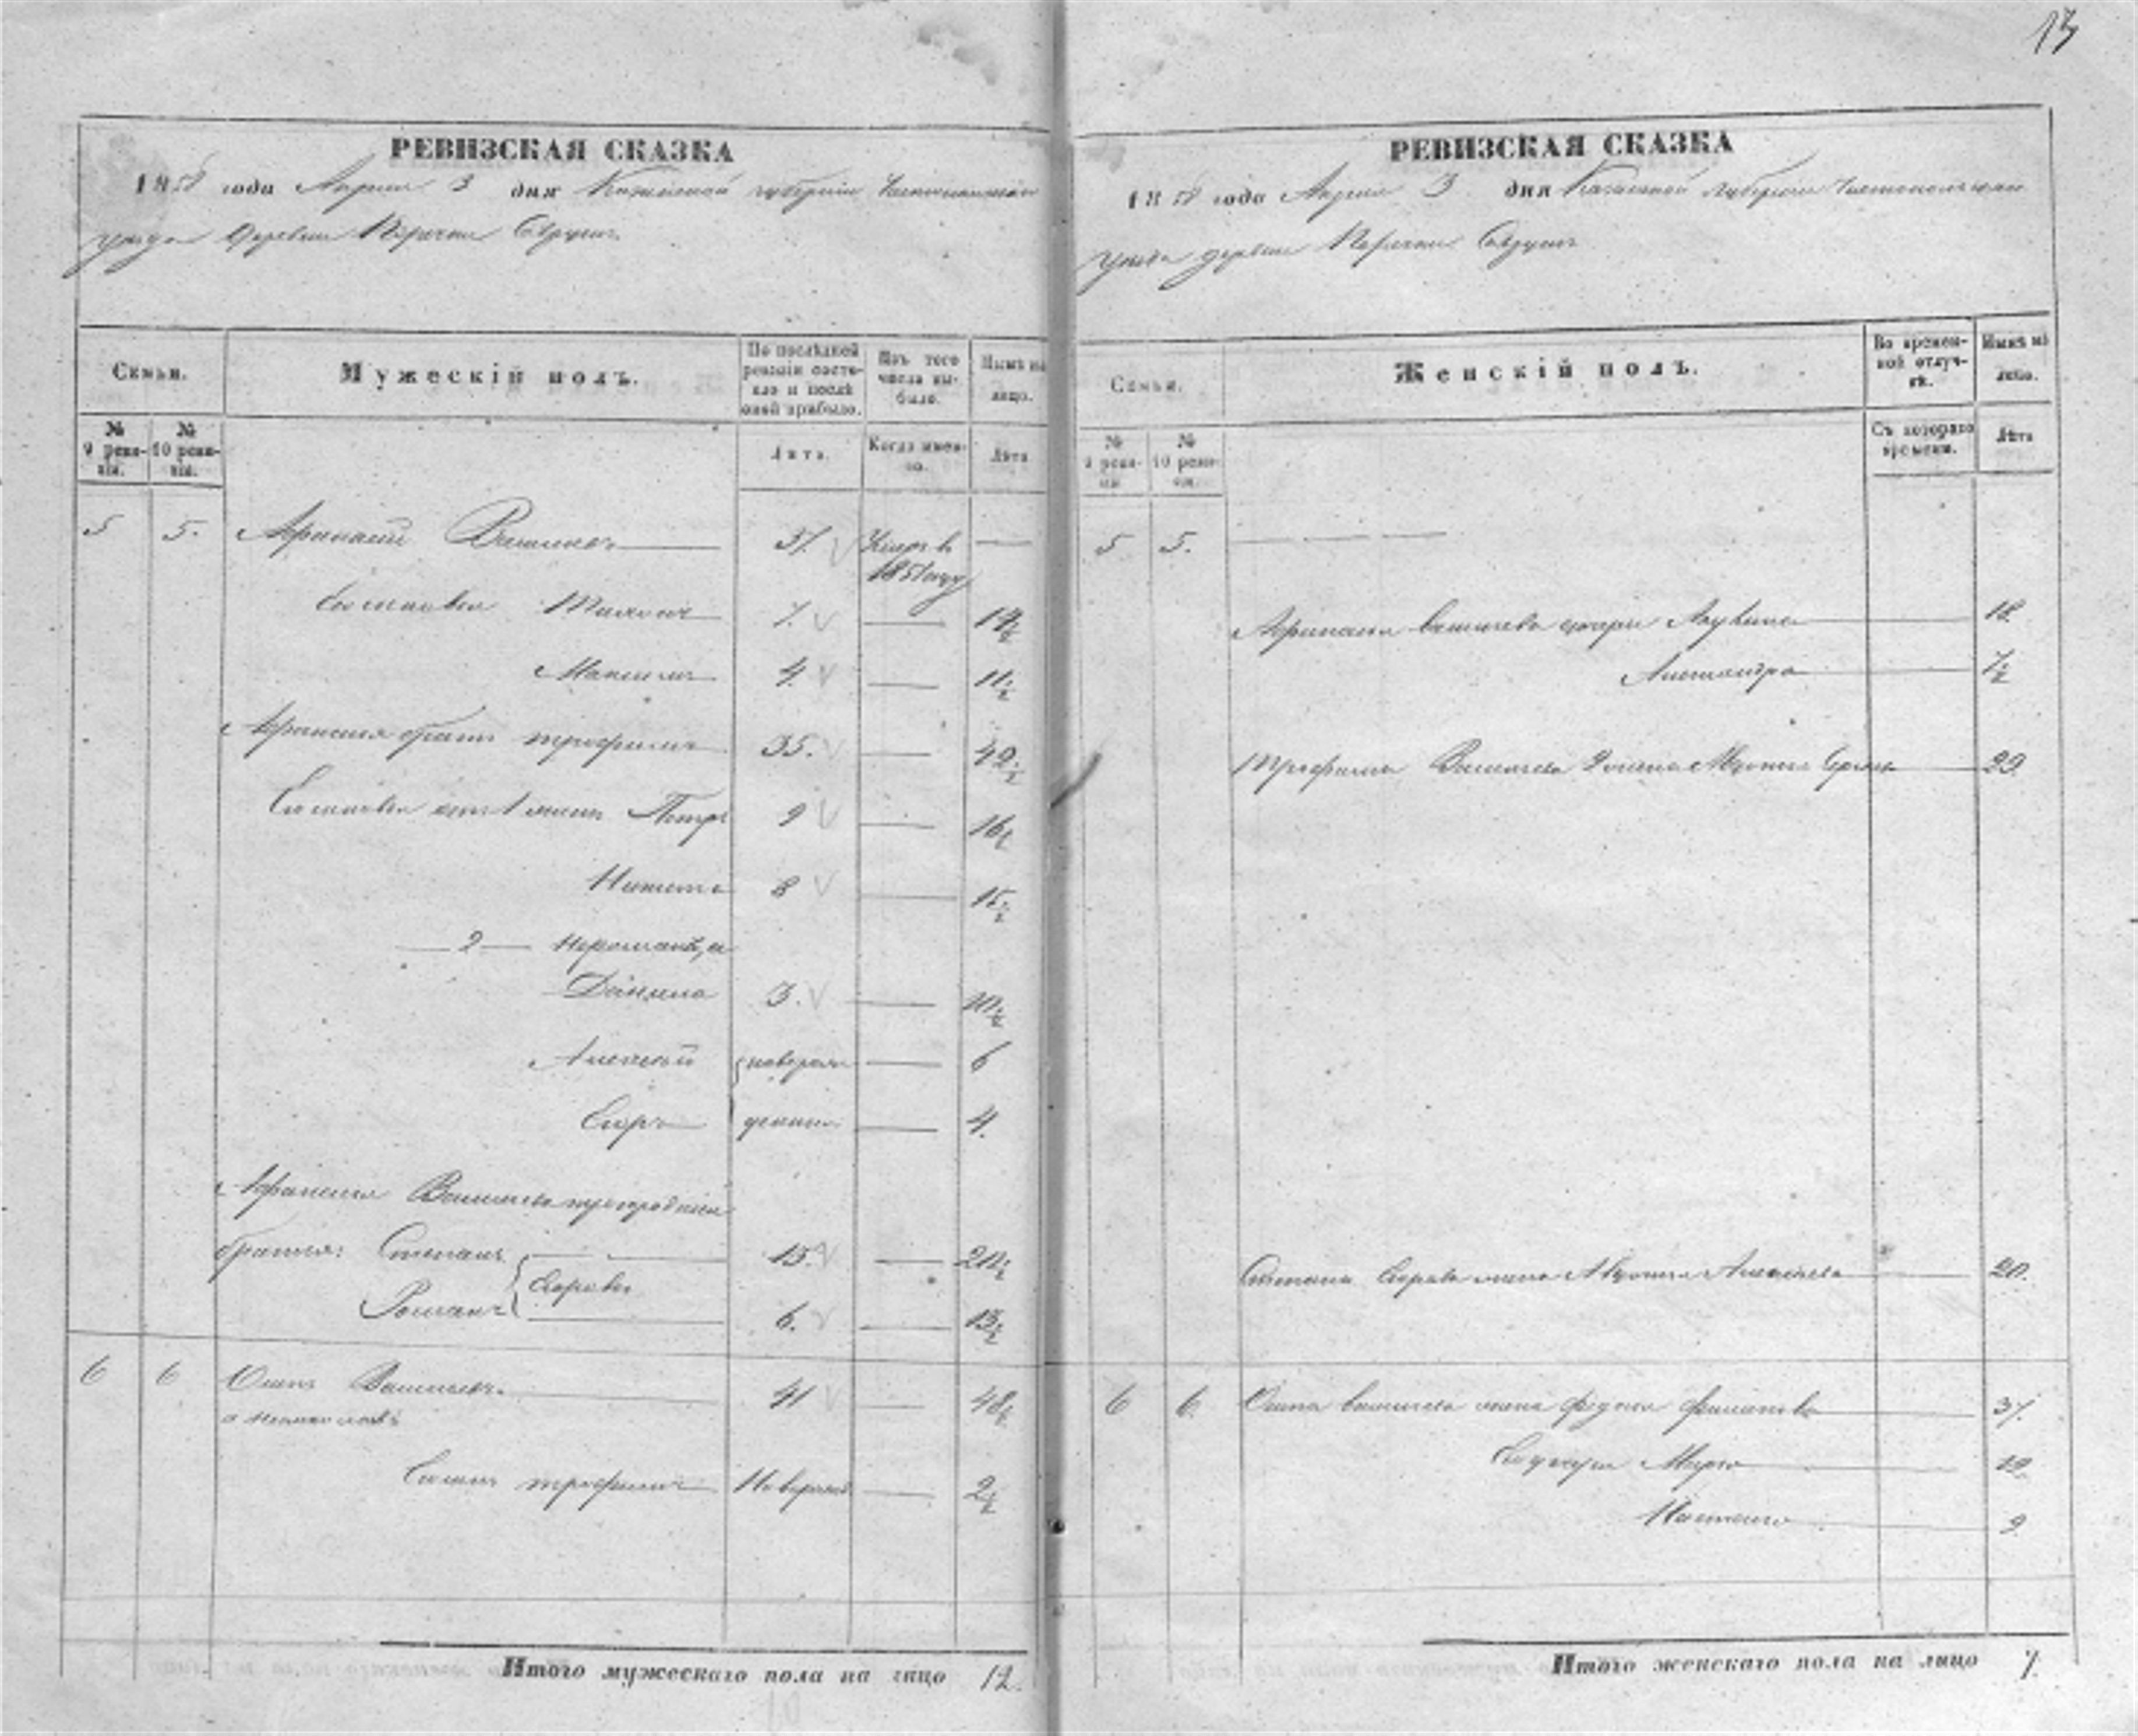 13
РЕВИЗСКАЯ СКАЗКА
1858 года Апреля 3 дня Казанской губернии Чистопольскаго
уезда Деревни
Семьи.
Мужескій полъ.
По послѣдней ревизіи состояло и послѣ оной прибыло.
Изъ того числа выбыло.
Нынѣ на лицо.
№ 9 ревизіи.
№ 10 ревизіи.
Лѣта.
Когда именно.
Лѣта
5 5. Афанасій Васильевъ 37. Умеръ в 1851 году
Сыновья 7.
Максимъ 4. 11½
Афанасія братъ Трофимъ 35. 42½
Сыновья отъ 1 жены Петръ 9 16½
Никита 8 15½
2
Данила 3. 10½
Алексѣй новорож 6
Егоръ денны 4.
Афанасія Васильева троюродніи
братья: Степанъ 13.
Егоровы
Романъ 6. 13½
6 6 Осипъ Васильевъ 41 48½
Сынъ Трофимъ Новорож 2½
Итого мужескаго пола на лицо 12.
РЕВИЗСКАЯ СКАЗКА
1858 года Апреля 3 дня Казанской губернии Чистопольскаго
уезда деревни
Семьи.
Женскій полъ.
Во временной отлучкѣ.
Нынѣ на лицо.
№ 9 ревизіи.
№ 10 ревизіи.
Съ котораго времени.
Лѣта
5 5.
Афанасія Васильева дочери Акулина 18.
7½
Трофима Васильева 29
Степана Егорова жена Авдотья Алексѣева 20.
6 6. Осипа Васильева жена Филипова 37.
Марья 19.
Настасья 9
Итого женскаго пола на лицо 7.